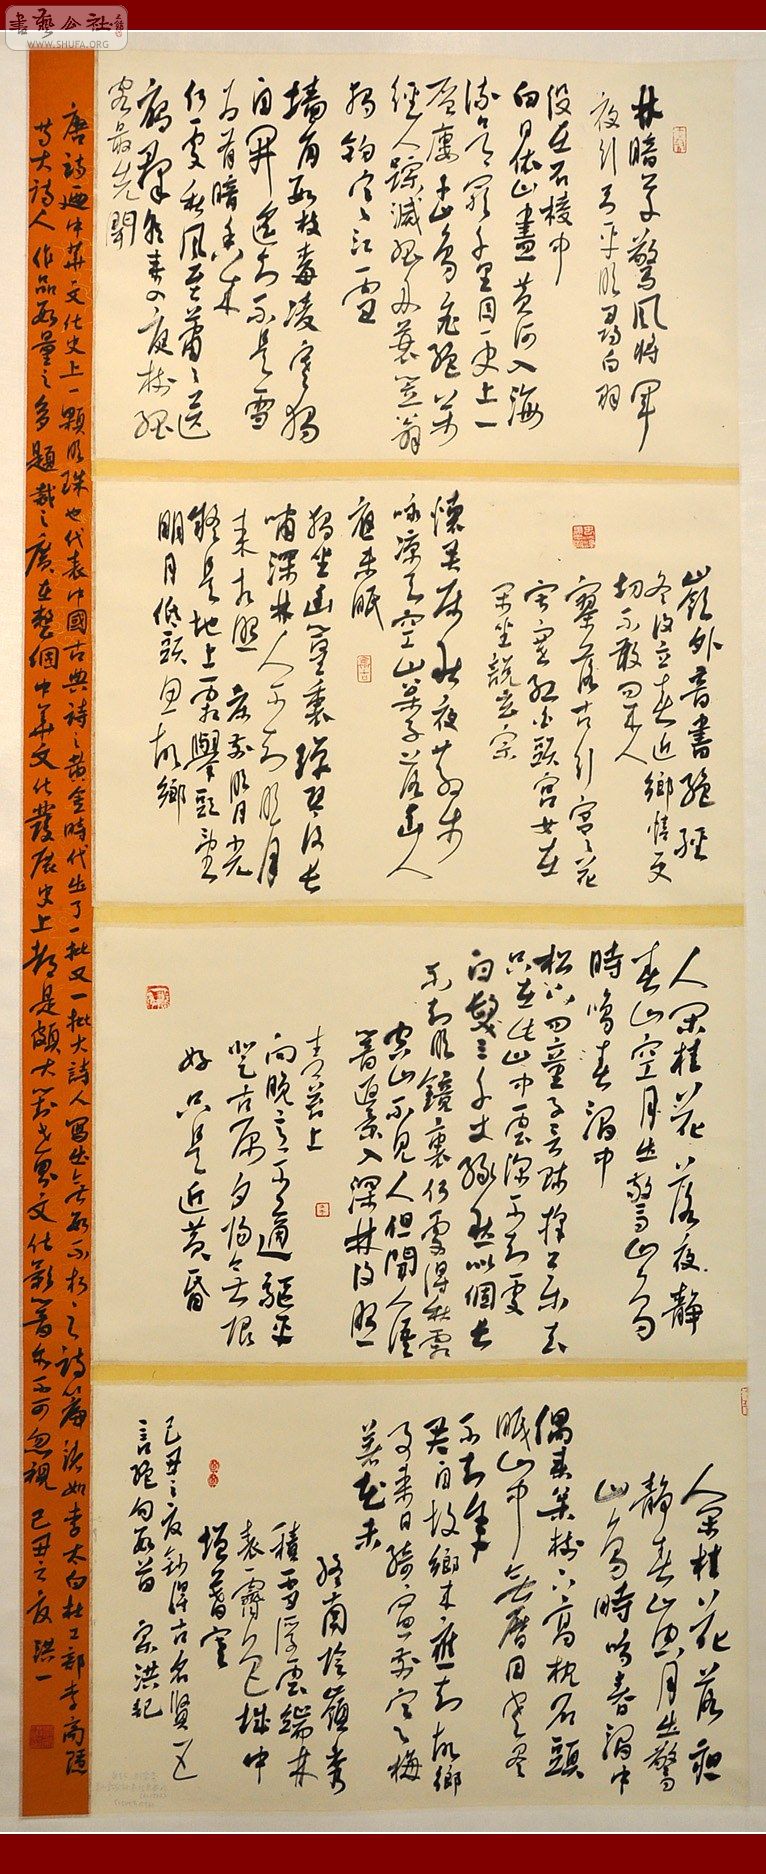 書藝公社
WWW.SHUFA.ORG
林暗草驚風將軍
夜引弓平明尋白羽
沒在石棱中
白日依山盡黃河入海
流欲窮千里目更上一
層樓千山鳥飛絕萬
徑人蹤滅孤舟蓑笠翁
獨釣寒江雪
墻角數枝梅凌寒獨
自開遙知不是雪
為有暗香來
何處秋風至蕭蕭送
雁群朝來入庭樹孤
客最先聞
嶺外音書絕經
冬復立春近鄉情更
切不敢問來人
寥落古行宮宮花
寂寞紅白頭宮女在
閑坐說玄宗
懷君屬秋夜散步
詠涼天空山松子落幽人
應未眠
獨坐幽篁裏彈琴復長
嘯深林人不知明月
來相照床前明月光
疑是地上霜舉頭望
明月低頭思故鄉
人閑桂花落夜靜
春山空月出驚山鳥
時鳴春澗中
松下問童子言師採藥去
只在此山中雲深不知處
白髮三千丈緣愁似個長
不知明鏡裏何處得秋霜
空山不見人但聞人語
響返景入深林復照
青苔上
向晚意不適驅車
登古原夕陽無限
好只是近黃昏
人閑桂花落夜
靜春山空月出驚
山鳥時鳴春澗中
偶來松樹下高枕石頭
眠山中無曆日寒盡
不知年
君自故鄉來應知故鄉
事來日綺窗前寒梅
著花未
終南陰嶺秀
積雪浮雲端林
表霽色城中
增暮寒
己丑之夜鈔得古名賢五
言絕句數首 宗洪記
唐詩迺中華文化史上一顆明珠也代表中國古典詩之黃金時代出了一批又一批大詩人寫出無數不朽之詩篇諸如李太白杜工部李商隱
等大詩人作品數量之多題裁之廣在整個中華文化發展史上都是頗大對世界文化影響亦不可忽視 己丑之夜洪一